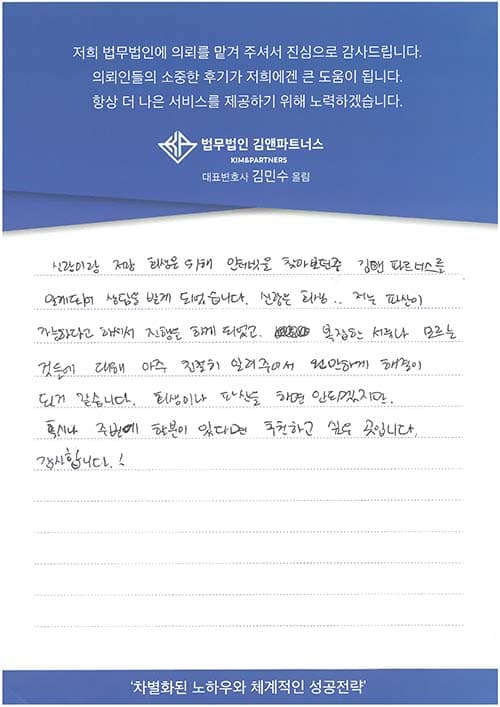 저희 법무법인에 의뢰를 맡겨 주셔서 진심으로 감사드립니다.
의뢰인들의 소중한 후기가 저희에겐 큰 도움이 됩니다.
항상 더 나은 서비스를 제공하기 위해 노력하겠습니다.
법무법인 김앤파트너스
KIM&PARTNERS
대표변호사 김민수 올림
신랑이랑 저랑 회생을 위해 인터넷을 찾아보던중 김앤 파트너스를
알게되어 상담을 받게 되었습니다. 신랑은 회생.. 저는 파산이
가능하다고 하셔서 진행을 하게 되었고. 복잡한 서류나 모르는
것들에 대해 아주 친절히 알려주셔서 원만하게 해결이
되거 같습니다. 회생이나 파산을 하면 안되겠지만.
혹시나 주변에 한분이 있다면 추천하고 싶은 곳입니다.
감사합니다.!
'차별화된 노하우와 체계적인 성공전략'